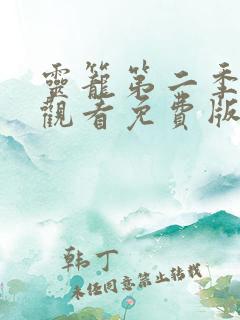 靈籠第二季
觀看免費版
韩丁
未经同意禁止转载